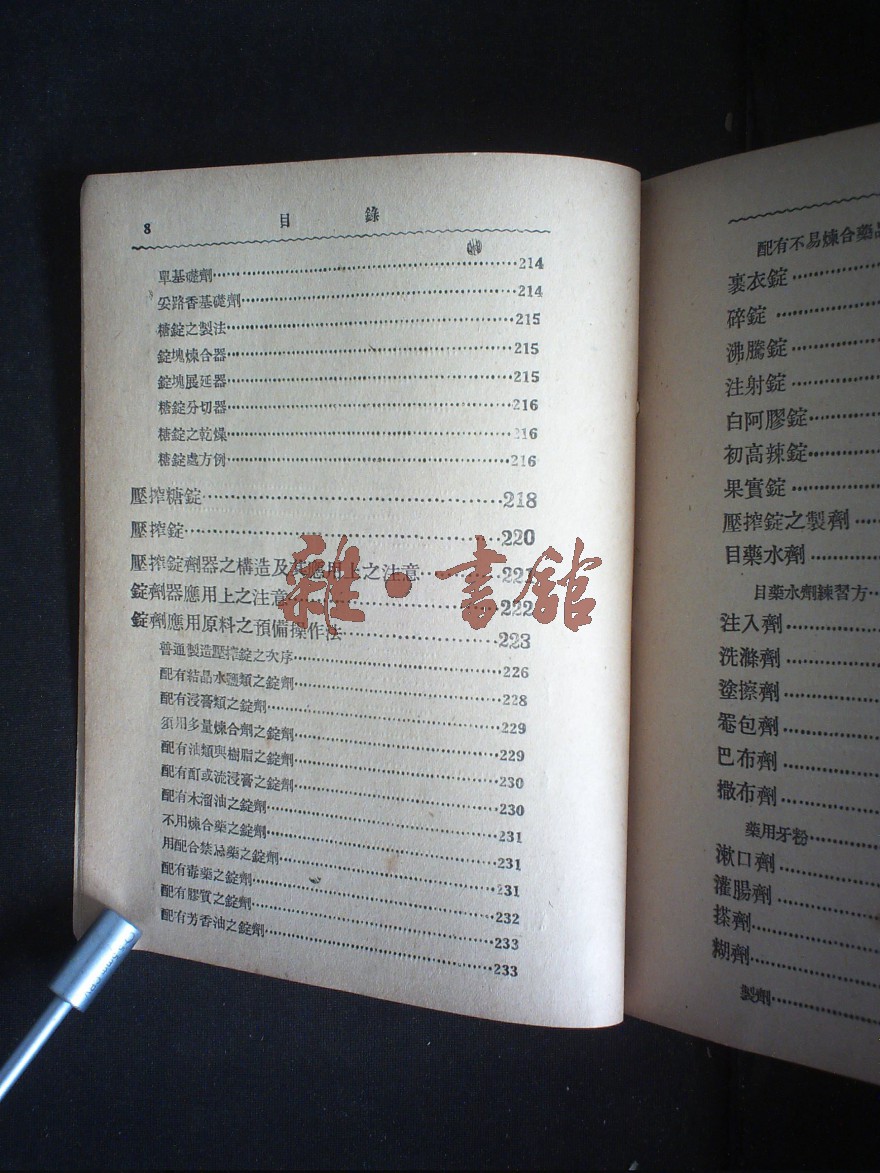 8 目 錄
單基礎劑 214
妥路香基礎劑 214
糖錠之製法 215
錠塊煉合器 215
錠塊展延器 215
糖錠分切器 216
糖錠之乾燥 216
糖錠處方例 216
壓搾糖錠 218
壓搾錠 220
壓搾錠劑器之構造及其應用上之注意 221
錠劑器應用上之注意 222
錠劑應用原料之預備操作法 223
普通製造壓搾錠之次序 226
配有結晶水鹽類之錠劑 228
配有浸膏類之錠劑 229
須用多量煉合劑之錠劑 229
配有油類與樹脂之錠劑 230
配有酊或流浸膏之錠劑 230
配有木溜油之錠劑 231
不用煉合藥之錠劑 231
用配合禁忌藥之錠劑 231
配有毒藥之錠劑 232
配有膠質之錠劑 233
配有芳香油之錠劑 233
雜·書館
配有不易煉合藥品
裹衣錠
碎錠
沸騰錠
注射錠
白阿膠錠
初高辣錠
果實錠
壓搾錠之製劑
目藥水劑
目藥水劑練習方
注入劑
洗滌劑
塗擦劑
罨包劑
巴布劑
撒布劑
藥用牙粉
漱口劑
灌腸劑
搽劑
糊劑
製劑